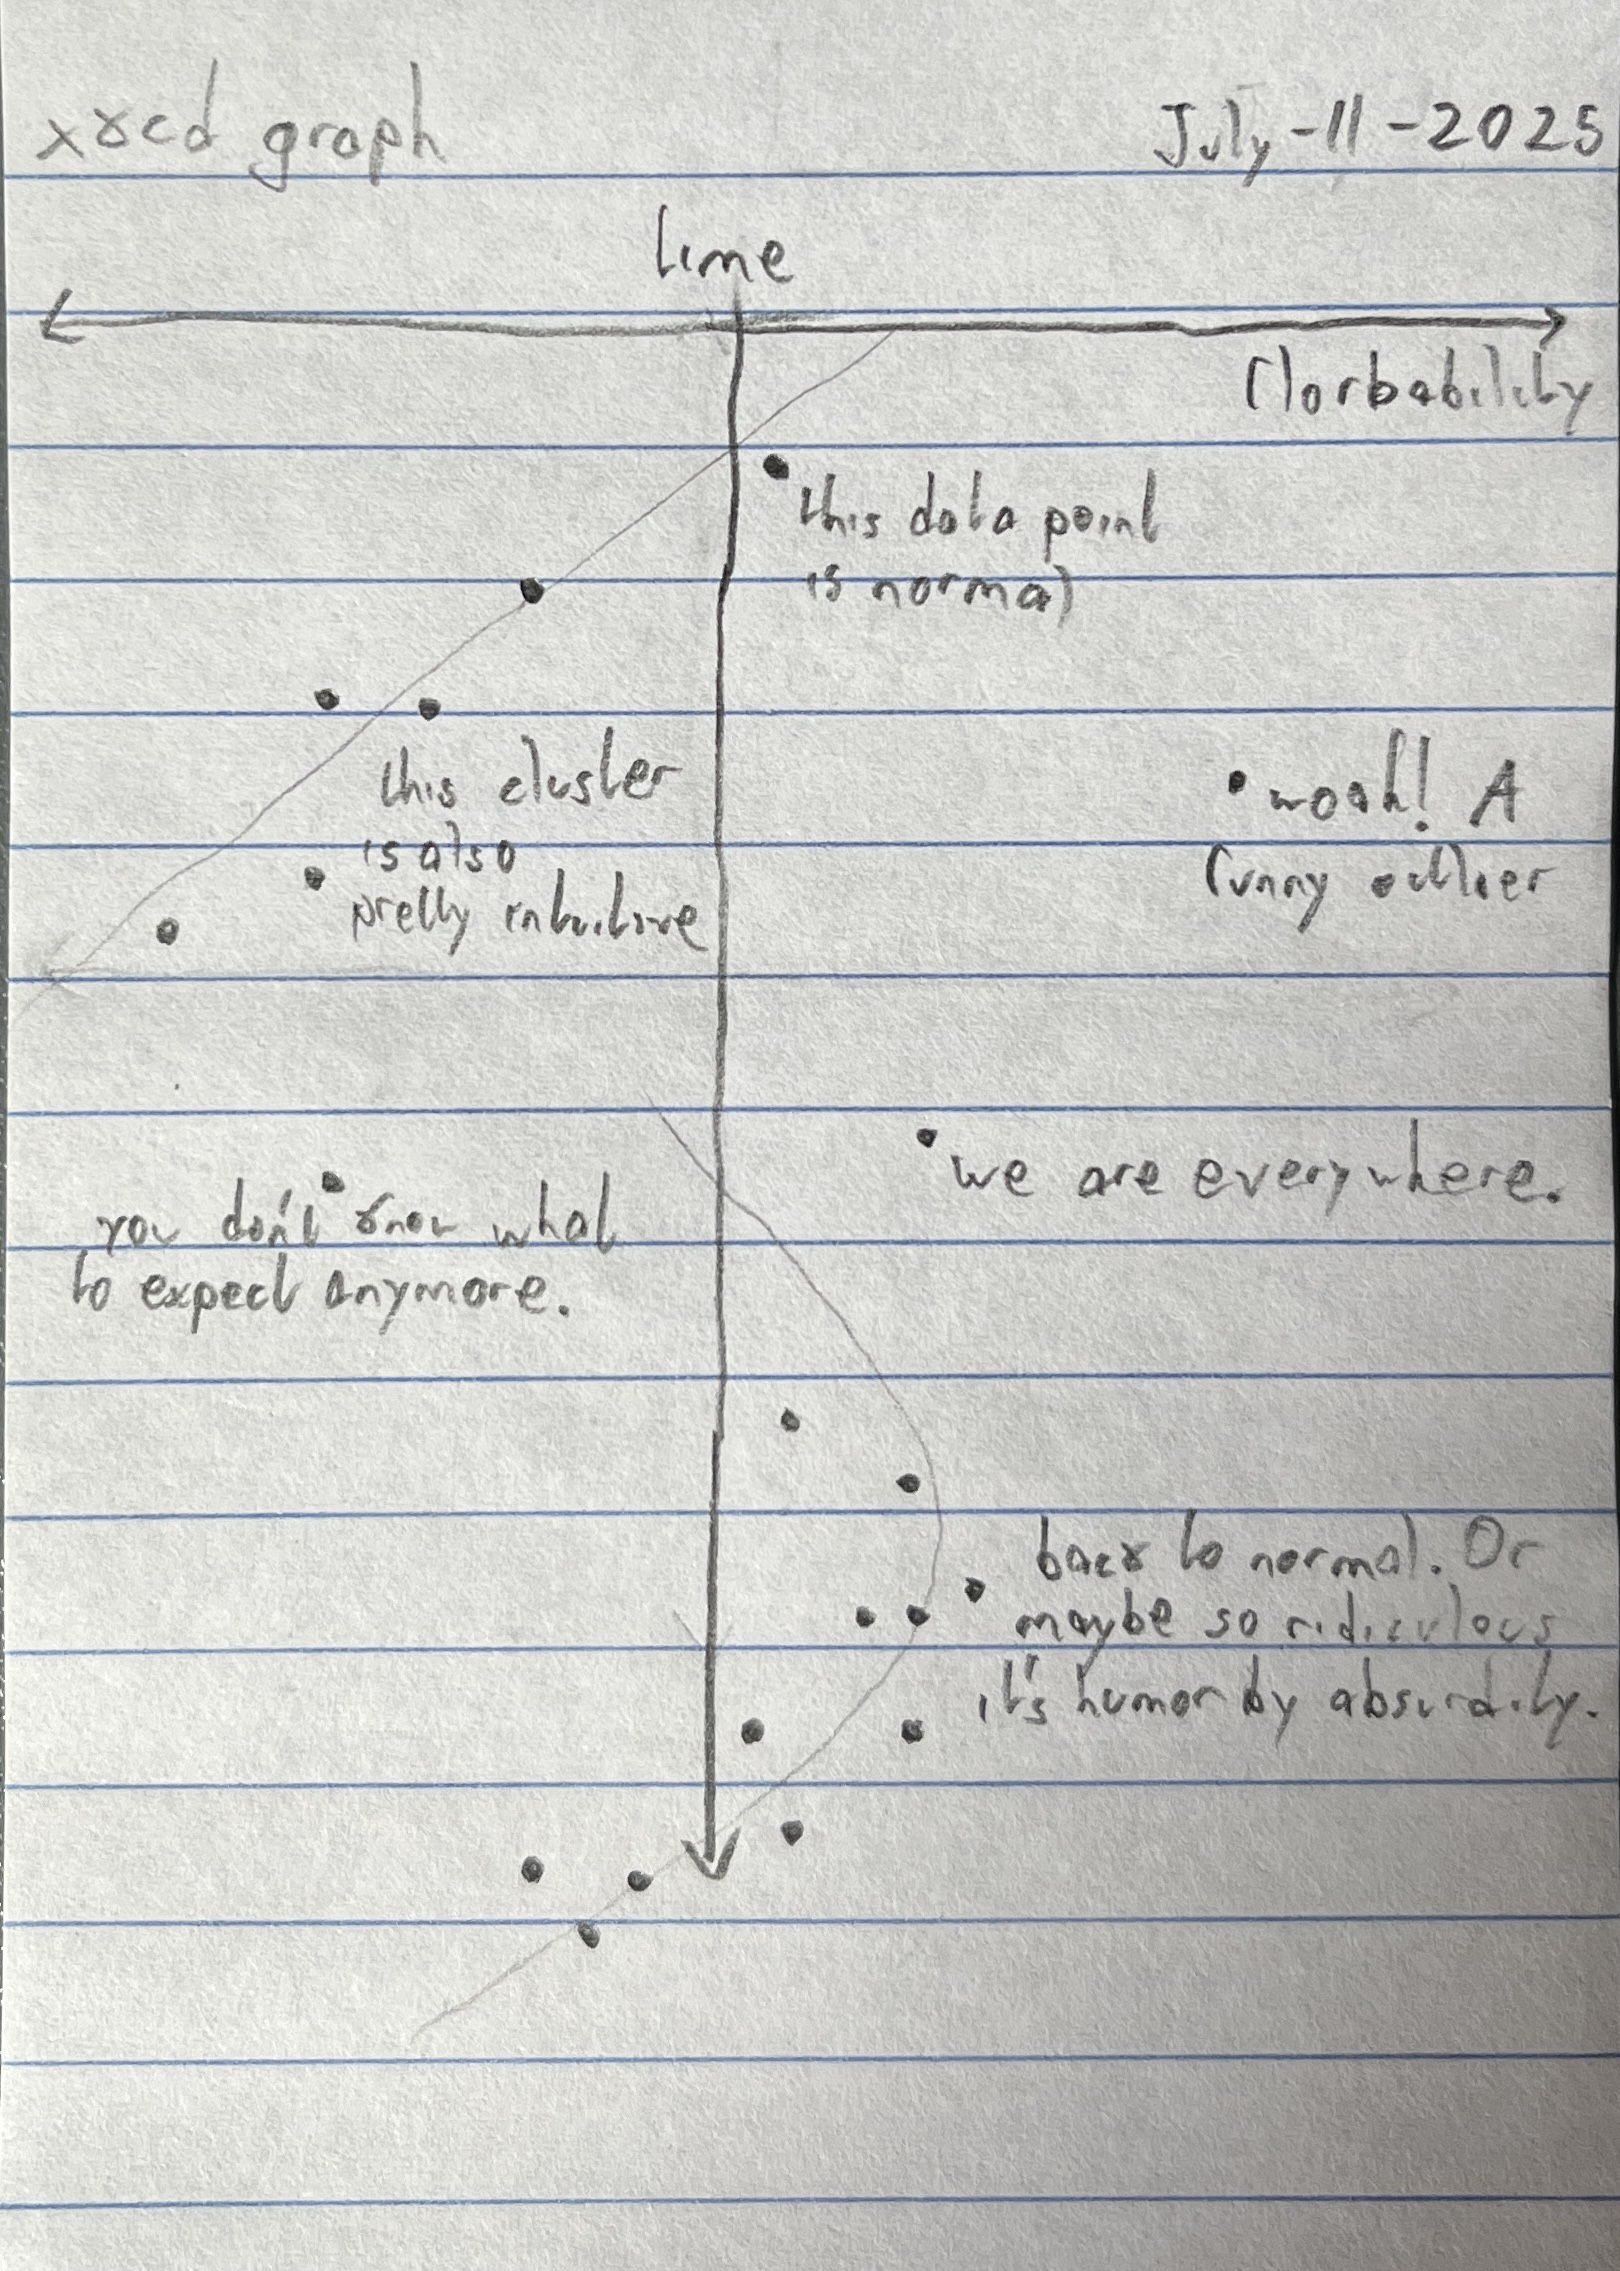 xkcd graph
July-11-2025
time
florbability
this data point
is normal
this cluster
is also
pretty intuitive
woah! A
funny outlier
we are everywhere.
you don't know what
to expect anymore.
back to normal. Or
maybe so ridiculous
it's humor by absurdity.